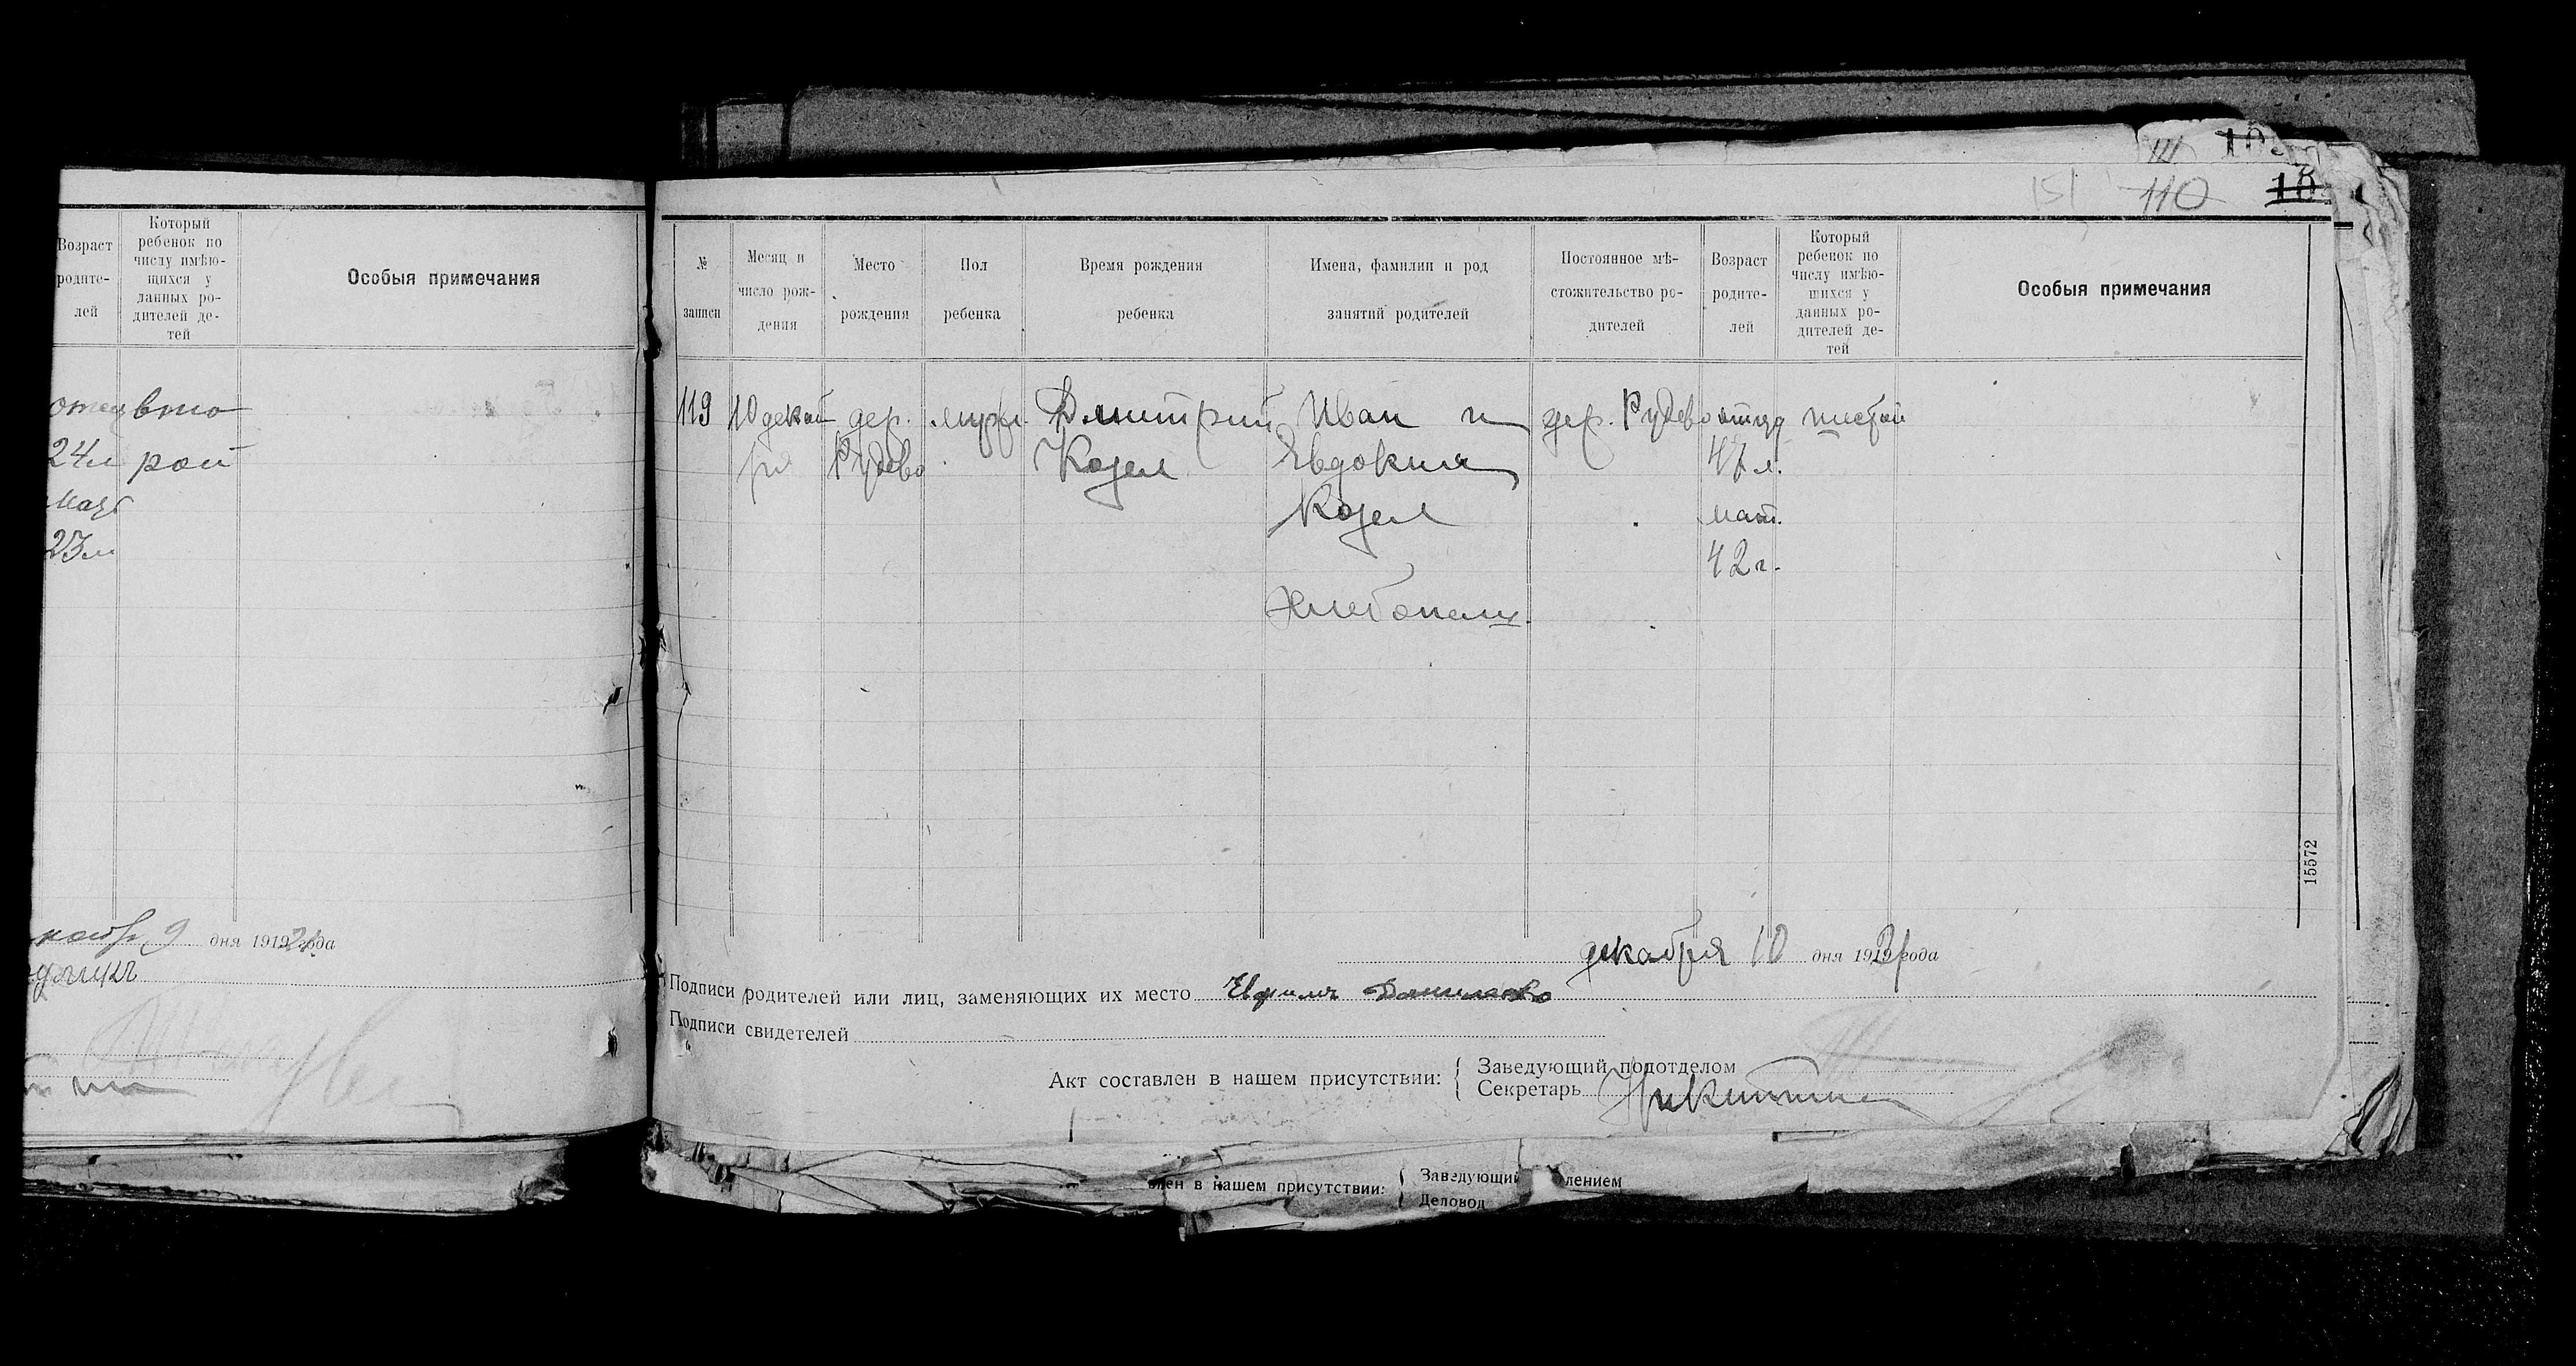 Возраст
родите-
лей
Который
ребенок по
числу имѣю-
щихся у
данных ро-
дителей де-
тей
Особыя примечания
отец вто
24л рой
23л
9 дня 1919 года
151 110
№
записи
Месяц и
число рож-
дения
Место
рождения
Пол
ребенка
Время рождения
ребенка
Имена, фамилии и род
занятий родителей
Постоянное мѣ-
стожительство ро-
дителей
Возраст
родите-
лей
Который
ребенок по
числу имѣю-
щихся у
данных ро-
дителей де-
тей
Особыя примечания
119 10 декаб дер. муж. Дмитрий Иван и дер. Рудево отцу шестой
ря Рудево Козел Евдокия 47 л.
Козел мат.
42 г.
Хлебопаш.
15572
декабря 10 дня 1921 года
Подписи родителей или лиц, заменяющих их место Ефимъ
Подписи свидетелей
Акт составлен в нашем присутствии: { Заведующий подотделом
Секретарь Никитин
влен в нашем присутствии: { Заведующий лением
Деловод